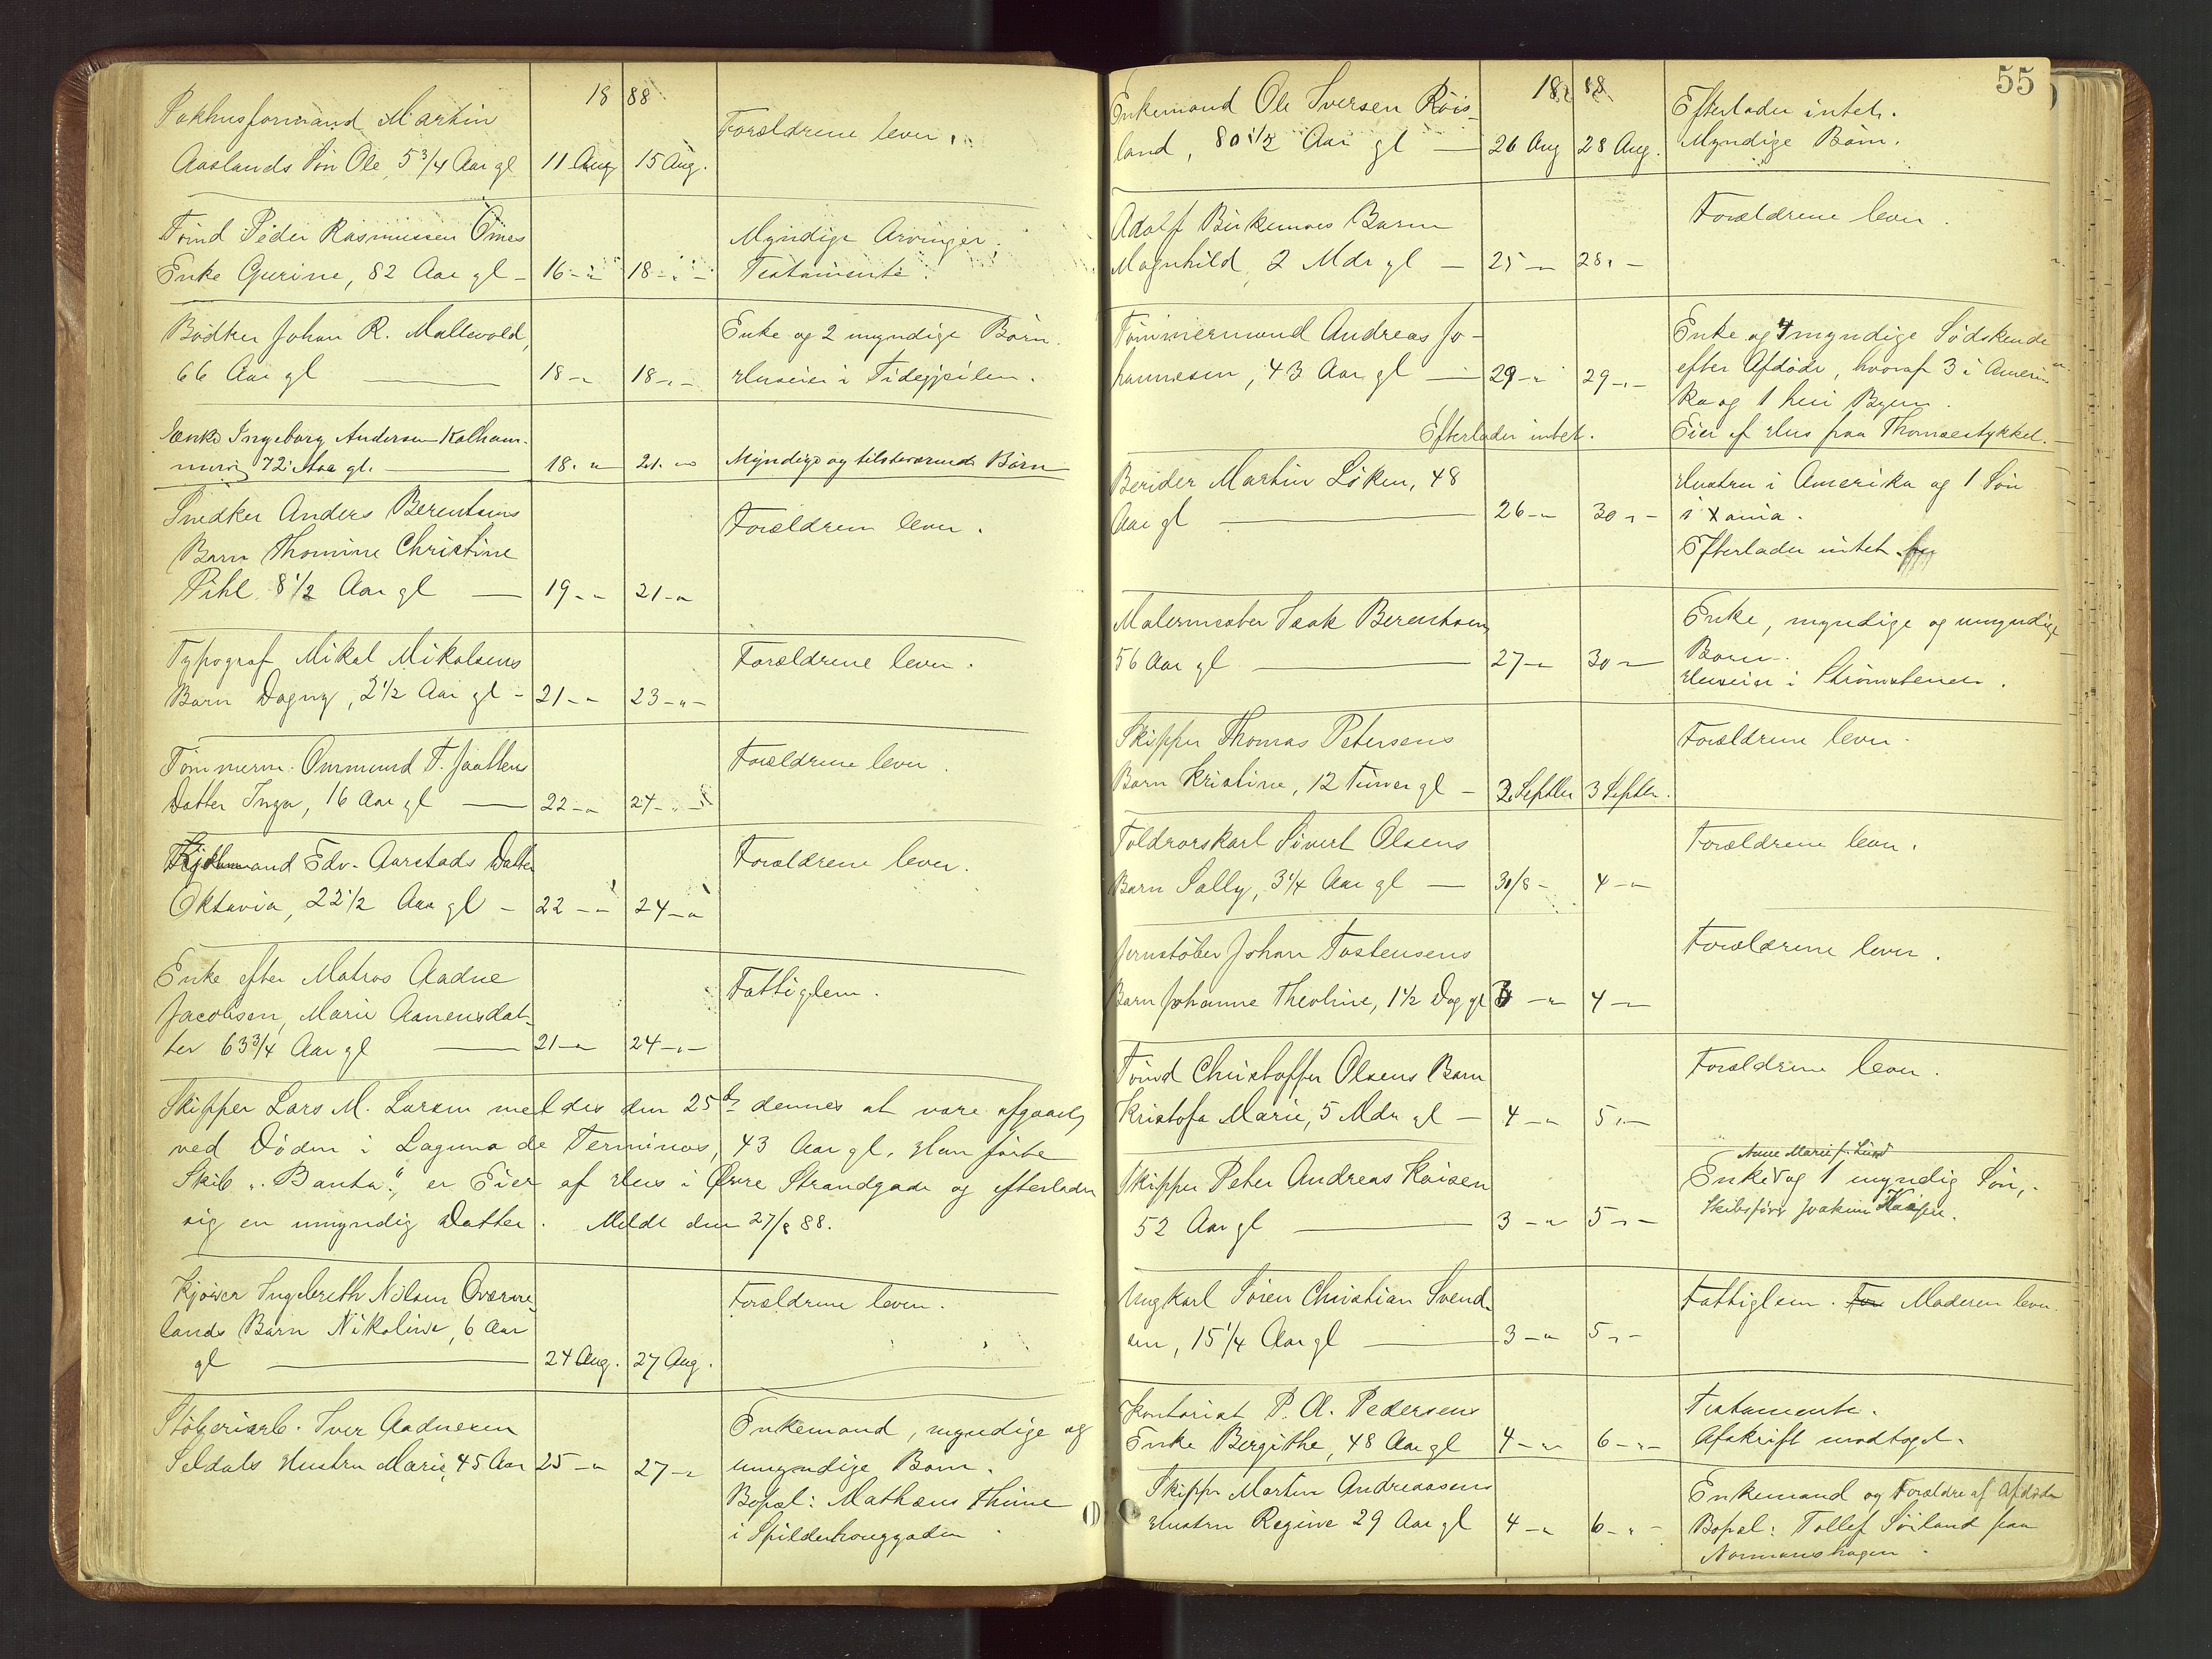 18 88
Pakhusformand Martin
Aaslands Søn Ole, 5 3/4 Aar gl 11 Aug 15 Aug.
Forældrene lever.
Tømd Peder Rasmussen Ømes
Enke Gurine, 82 Aar gl - 16 - " 18 - " -
Myndige Arvinger.
Testamente.
Bødker Johan R. Mallevold,
66 Aar gl — 18 - " 18 - " -
Enke og 2 myndige Børn.
Huseier i Tidegjeilen.
Enke Ingeborg Andersen Kolham-
72 Aar gl. — 18 - " 21 - "
Myndige og tilstedeværende Børn
Snedker Anders Berentsens
Barn Thomine Christine
Pihl 8 1/2 Aar gl — 19 - " 21 - "
Forældrene lever.
Typograf Mikal Mikalsens
Barn Dagny, 2 1/2 Aar gl - 21 - " 23 - " -
Forældrene lever.
Tømmerm. Ommund T. Jaattens
Datter Inga, 16 Aar gl — 22 - " 24 - " -
Forældrene lever.
Edv. Aarstads Datter
Oktavia, 22 1/2 Aar gl - 22 - " 24 - "
Forældrene lever.
Enke efter Matros Aadne
Jacobsen, Marie Aanensdat-
ter 63 3/4 Aar gl — 21 - " 24 - " -
Fattiglem.
Skipper Lars M. Larsen meldes den 25de dennes at være afgaaet
ved Døden i Laguna de Terminos, 43 Aar gl. Han førte
Skib "Banta", er Eier af Hus i Øvre Strandgade og efterlader
sig en umyndig Datter. Meldt den 27/8 88.
Kjører Ingebreth Nilsen Qværne-
lands Barn Nikoline, 6 Aar
gl — 24 Aug. 27 Aug.
Forældrene lever.
Støberiarb. Iver Aadnesen
Seldals Hustru Marie, 45 Aar 25 - " 27 - "
Enkemand, myndige og
umyndige Børn.
Bopæl: Mathæus Thime
i Spilderhouggaden
55
18 88
Enkemand Ole Iversen Røis-
land, 80 1/2 Aar gl — 26 Aug 28 Aug.
Efterlader intet.
Myndige Børn.
Adolf Birkemoes Barn
Magnhild, 2 Mdr gl — 25 - " 28 " -
Forældrene lever.
Tømmermand Andreas Jo-
hannesen, 43 Aar gl — 29 - " 29 - " -
Efterlader intet.
Enke og 4 myndige Sødskende
efter Afdøde, hvoraf 3 i Ameri-
ka og 1 her i Byen.
Eier af Hus paa Thomsestykket.
Berider Martin Løken, 48
Aar gl — 26 - " 30 - " -
Hustru i Amerika og 1 Søn
i Xania.
Efterlader intet.
Malermester Isak Berentsen,
56 Aar gl — 27 - " 30 - "
Enke, myndige og umyndige
Børn.
Huseier i Strømstenen.
Skipper Thomas Petersens
Barn Kristine, 12 Timer gl - 2 Septber 3 Septbr.
Forældrene lever.
Toldrorskarl Sivert Olsens
Barn Sally, 3 1/4 Aar gl — 30/8 - 4 - "
Forældrene lever.
Jernstøber Johan Tostensens
Barn Johanne Theoline, 1 1/2 Dag gl 3 - " 4 - "
Forældrene lever.
Tømd Christoffer Olsens Barn
Kristofa Marie, 5 Mdr gl — 4 - " 5 " -
Forældrene lever.
Skipper Peter Andreas Kaisen
52 Aar gl — 3 - " 5 - " -
Anne Marie f. Lund
Enke og 1 myndig Søn,
Skibsfører Joakim Kaisen.
Ungkarl Søren Christian Svend-
sen, 15 1/4 Aar gl — 3 - " 5 " -
Fattiglem. For Moderen lever.
Kontorist P. A. Pedersens
Enke Bergithe, 48 Aar gl 4 - " 6 - " -
Testamente.
Afskrift modtaget.
Skipper Martin Andreassens
Hustru Regine 29 Aar gl 4 - " 6 - " -
Enkemand og Forældre af Afdøde
Bopæl: Tollef Søiland paa
Normanshagen.